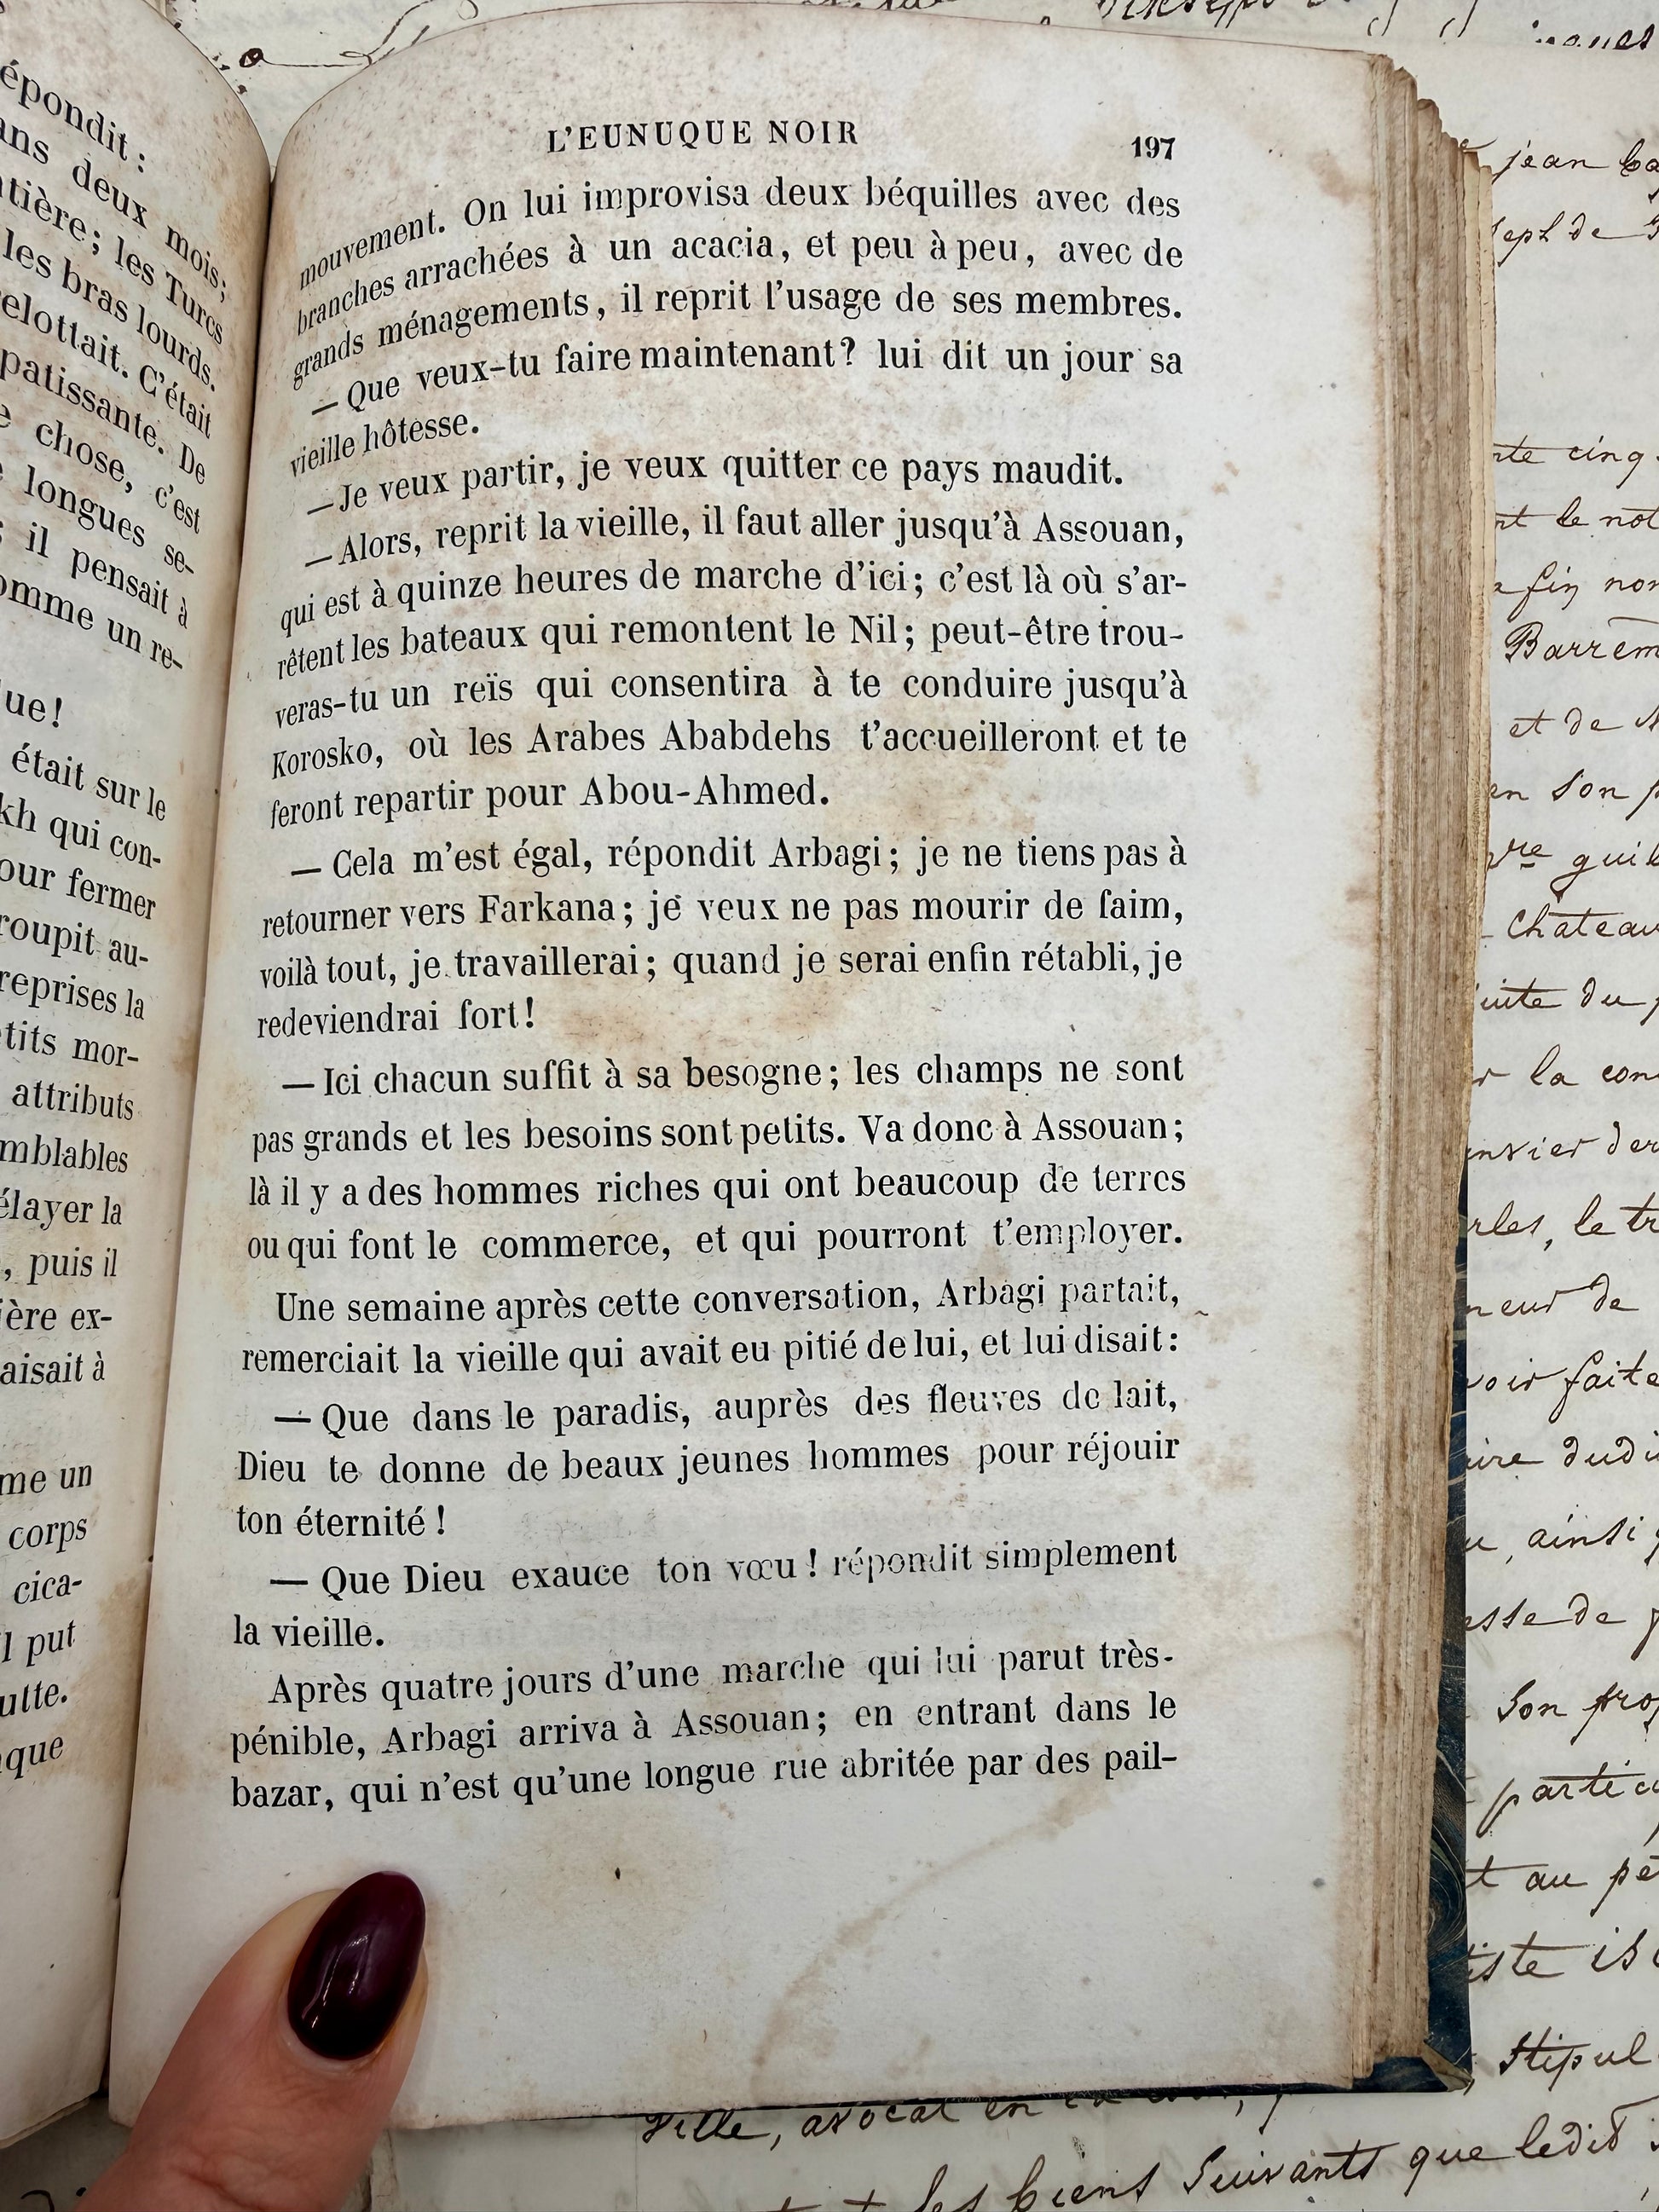 épondit :
ans deux mois;
tière; les Turcs
les bras lourds.
elottait. C'était
patissante. De
e chose, c'est
longues se-
; il pensait à
omme un re-
ue!
était sur le
kh qui con-
our fermer
roupit au-
reprises la
tits mor-
attributs
mblables
élayer la
, puis il
ière ex-
aisait à
me un
corps
cica-
l put
utte.
que
L'EUNUQUE NOIR
197
mouvement. On lui improvisa deux béquilles avec des
branches arrachées à un acacia, et peu à peu, avec de
grands ménagements, il reprit l'usage de ses membres.
— Que veux-tu faire maintenant? lui dit un jour sa
vieille hôtesse.
— Je veux partir, je veux quitter ce pays maudit.
— Alors, reprit la vieille, il faut aller jusqu'à Assouan,
qui est à quinze heures de marche d'ici; c'est là où s'ar-
rêtent les bateaux qui remontent le Nil; peut-être trou-
veras-tu un reïs qui consentira à te conduire jusqu'à
Korosko, où les Arabes Ababdehs t'accueilleront et te
feront repartir pour Abou-Ahmed.
— Cela m'est égal, répondit Arbagi; je ne tiens pas à
retourner vers Farkana; je veux ne pas mourir de faim,
voilà tout, je travaillerai; quand je serai enfin rétabli, je
redeviendrai fort!
— Ici chacun suffit à sa besogne; les champs ne sont
pas grands et les besoins sont petits. Va donc à Assouan;
là il y a des hommes riches qui ont beaucoup de terres
ou qui font le commerce, et qui pourront t'employer.
Une semaine après cette conversation, Arbagi partait,
remerciait la vieille qui avait eu pitié de lui, et lui disait:
— Que dans le paradis, auprès des fleuves de lait,
Dieu te donne de beaux jeunes hommes pour réjouir
ton éternité!
— Que Dieu exauce ton vœu! répondit simplement
la vieille.
Après quatre jours d'une marche qui lui parut très-
pénible, Arbagi arriva à Assouan; en entrant dans le
bazar, qui n'est qu'une longue rue abritée par des pail-
jean
seph de
cinq
le not
fin non
Barrem
et de
en son
guil
Chateau
du
la con
der
rles, le tr
neur de
voir faite
dudi
ainsi
esse de
Son prop
partic
au
iste
Stipul
Ville, avocat en
les biens Suivants que ledit